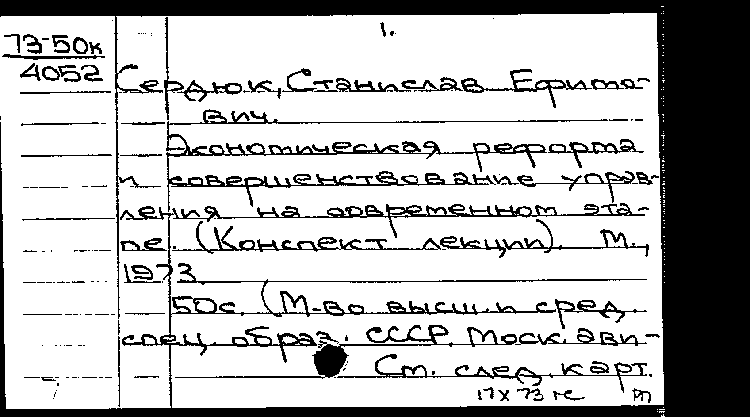 1.
73-50к
4052
Сердюк, Станислав Ефимо-
вич.
Экономическая реформа
и совершенствование управ-
ления на современном эта-
пе. (Конспект лекции). М.,
1973.
50с. (М-во высш. и сред.
спец. образ. СССР. Моск. ави-
См. след. карт.
17 X 73 гс РП